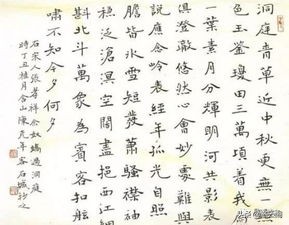 洞庭青草近中秋更無一
色玉鑑瓊田三萬頃着我扁
一葉素月分輝明河共影表
俱澄澈悠然心會妙處難與
說應念嶺表經年孤光自照
膽皆冰雪短髮蕭騷襟袖
穩泛滄溟空闊盡挹西江
斟北斗萬象為賓客扣舷
嘯不知今夕何夕
右宋人張孝祥念奴嬌過洞庭
時丁丑桂月合山陳元年客石城抄之